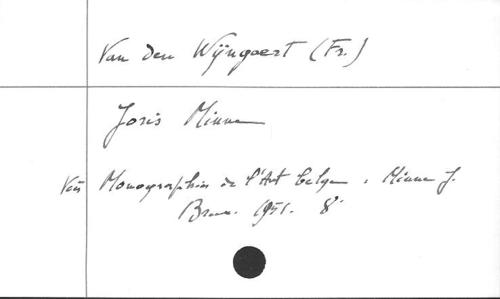 Van den Wijngaert (Fr.)
Joris Minne
Monographies de l'Art belge. Minne J.
1951. 8°